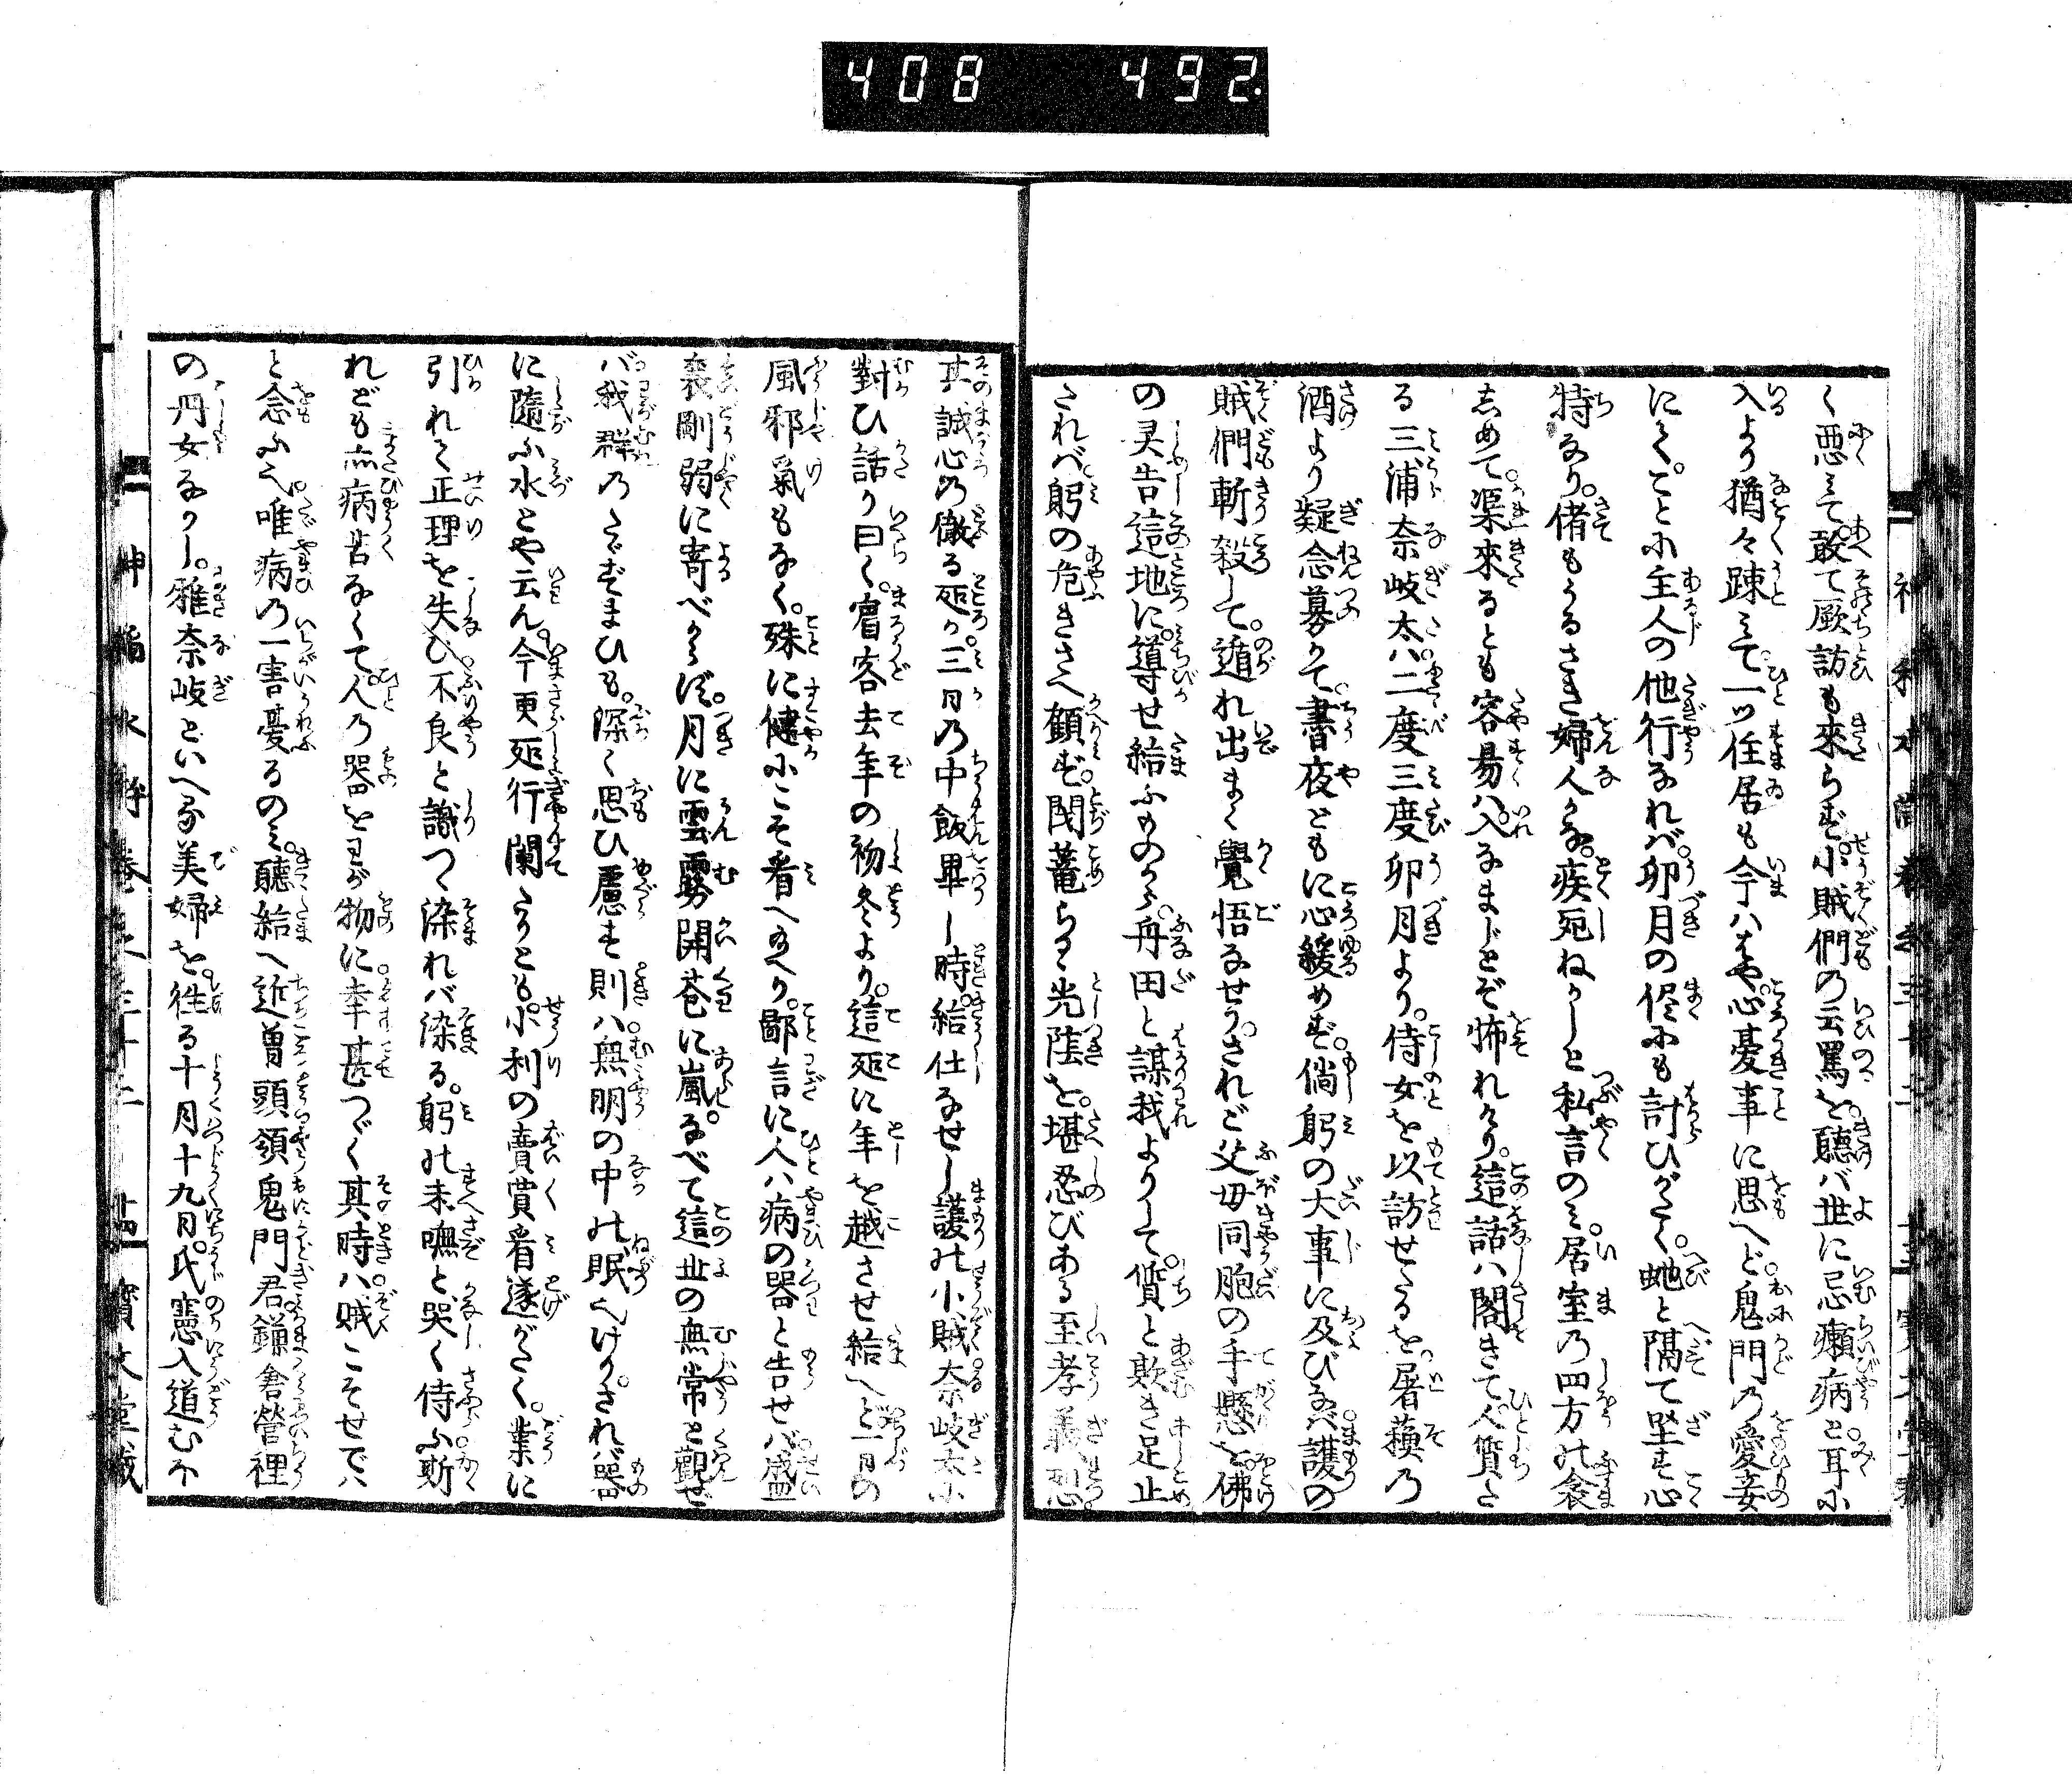 408 492.
く悪みて。敢て厥訪も來らず。小賊們の云罵を。聽バ世に忌癩病と。耳に
入より猶々踈みて。一ツ住居も今ハはや。心憂事に思へど。鬼門の愛妾
にて。ことに主人の他行なれバ。卯月の侭にも計ひがたく。虵と隔て坐す心
特なり。偖もうるさき婦人かな。疾死ねかしと私言のミ。居室の四方の衾
しめて。渠來るとも容易ハ。入なまじとぞ怖れける。這話ハ閣きて。人質た
る三浦奈岐太ハ。二度三度卯月より。侍女を以訪せたるを。屠蘓の
酒より疑念募りて。晝夜ともに心緩めず。倘躬の大事に及びなバ。護の
賊們斬殺して。遁れ出まく覺悟なせり。されど父母同胞の手懸を。佛
の灵告這地に。導せ給ふものから。舟田と謀我よりして。質と欺き足止
されバ。躬の危きさへ顧ず。閉篭らるゝ光陰を。堪忍びある至孝義烈。
其誠心の徹る処か。三日の中飯畢し時。給仕なせし護の小賊。奈岐太に
對ひ話り曰く。賓客去年の初冬より。這処に年を越させ給へど。一日の
風邪氣もなく。殊に健にこそ看へ給へり。鄙言に人ハ病の器と告せバ。盛
衰剛弱に寄べからず。月に雲霧開花に嵐。なべて這世の無常を觀ぜ
バ。我群のたゞずまひも。深く思ひ慮す則ハ。無明の中の眠へけり。されバ器
に隨ふ水とや云ん。今更処行闌たりとも。小利の賣買看遂がたく。業に
引れて正理を失ひ。不良と識つゝ染れバ染る。躬の末嘸と哭く侍ふ。斯
れども亦病苦なくて。人の器をわが物に。幸甚つゞく其時ハ。賊こそせでハ
と念ふ也。唯病の一害憂るのミ。聽給へ近曽頭領鬼門君。鎌倉營裡
の丹女なりし。雅奈岐といへる美婦を。徃る十月十九日。氏憲入道むほ